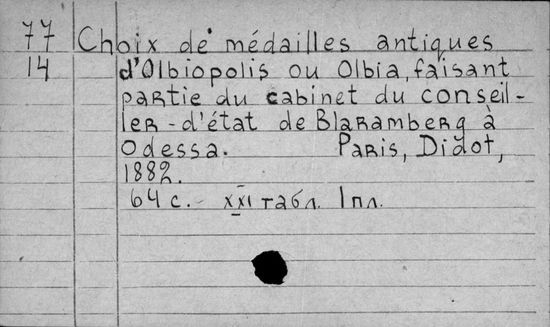 77 Choix de médailles antiques
14 d'Olbiopolis ou Olbia, faisant
partie du cabinet du conseil-
ler-d'état de Blaramberg à
Odessa. Paris, Didot,
1882.
64 с. - XXI табл. 1 пл.